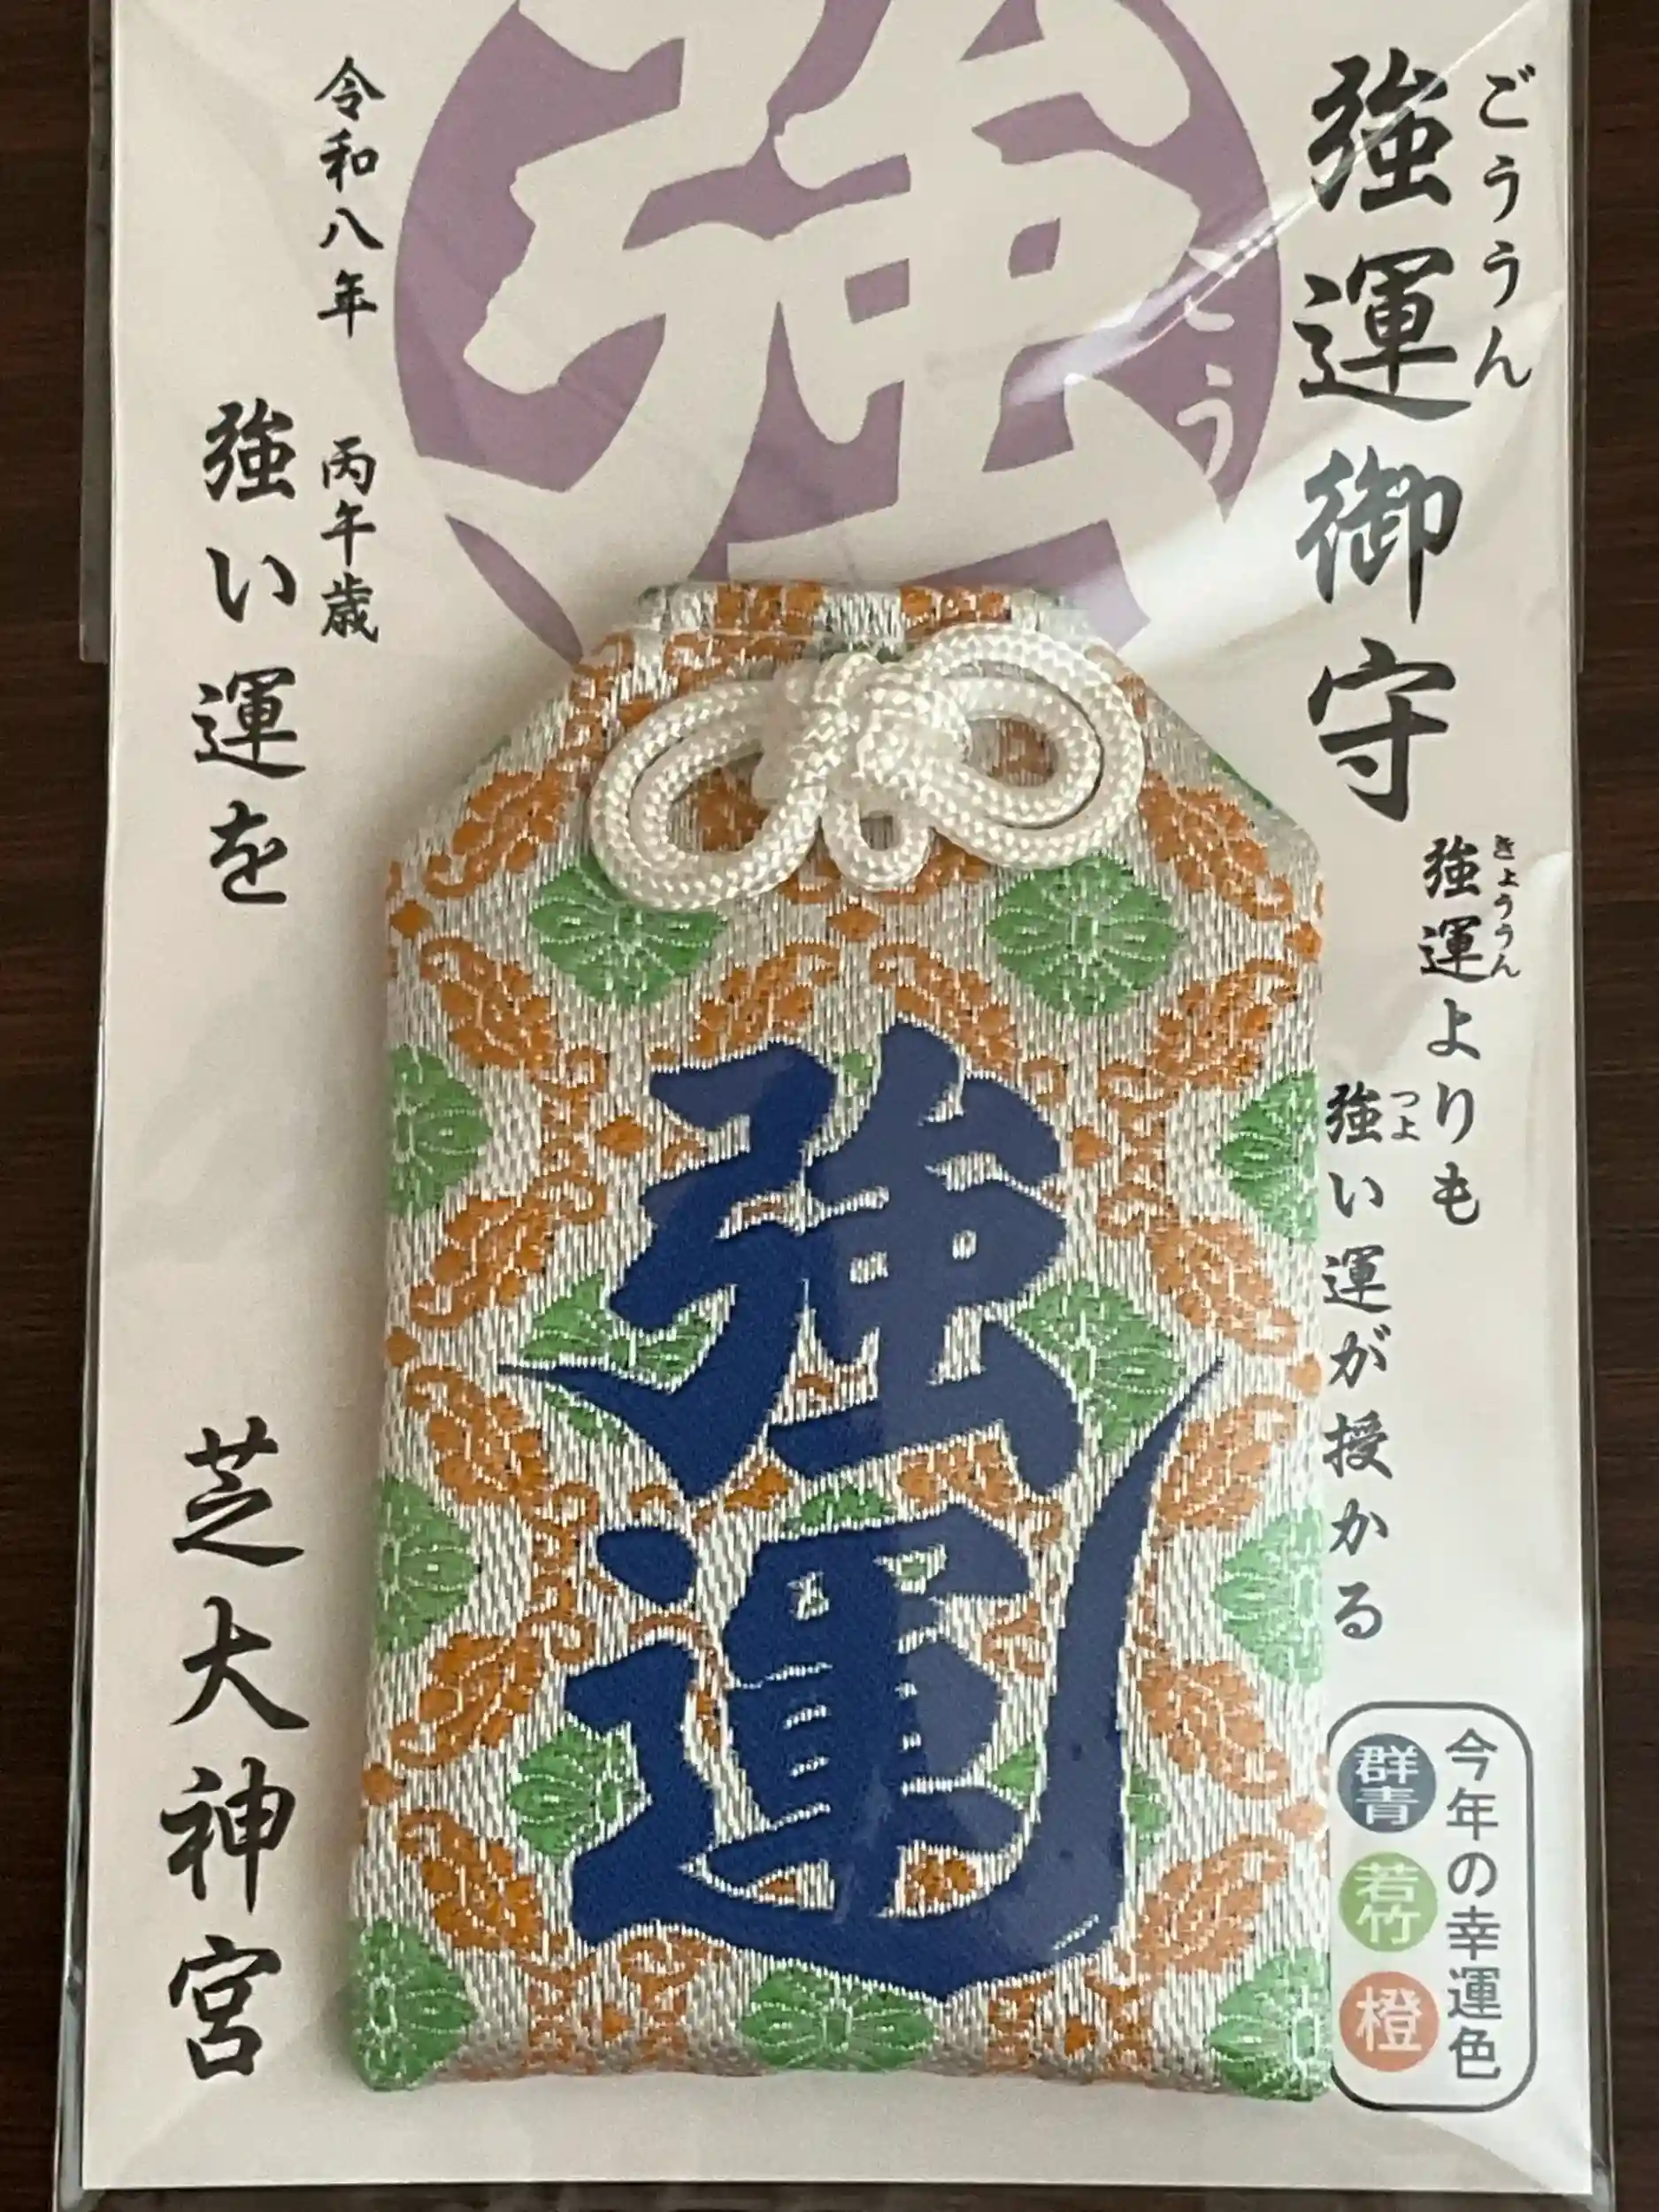 ごううん
強運御守
きょううん
強運よりも
つよ
強い運が授かる
今年の幸運色
群青
若竹
橙
強
ごう
強運
令和八年
丙午歳
強い運を
芝大神宮